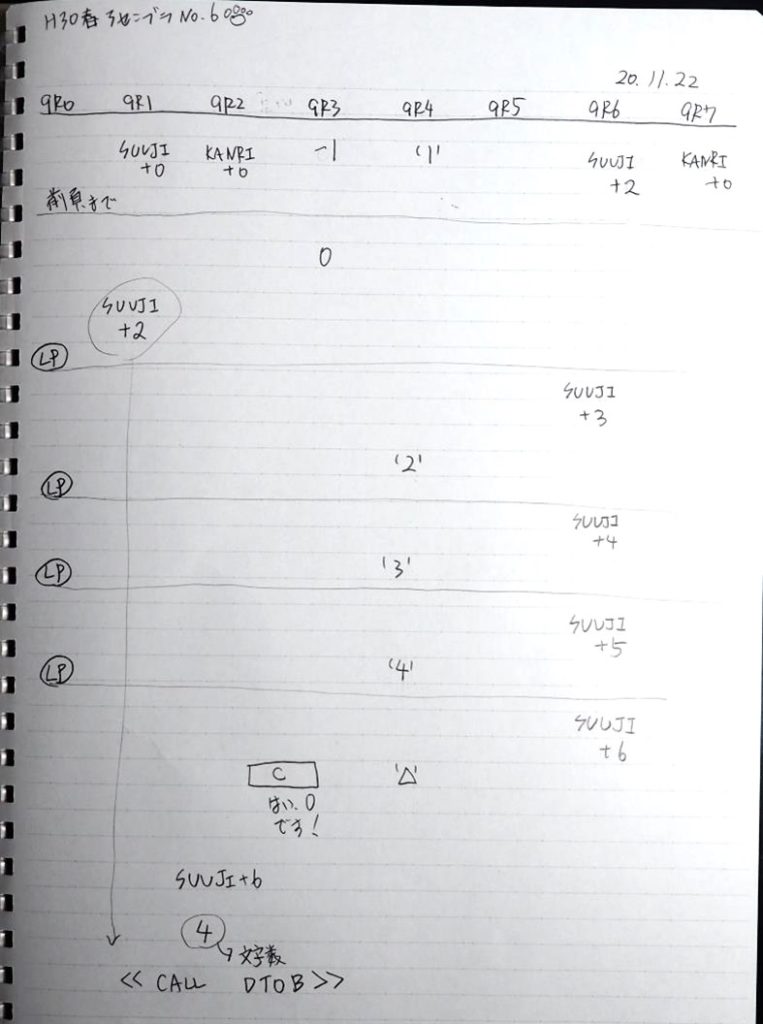 H30春 アセンブラ No.6
20.11.22
GR0 GR1 GR2 GR3 GR4 GR5 GR6 GR7
SUUJI +0 KANRI +0 -1 '1' SUUJI +2 KANRI +0
前頁まで
0
SUUJI +2
LP
SUUJI +3
'2'
LP
SUUJI +4
LP '3'
SUUJI +5
LP '4'
SUUJI +6
C '△'
はい、0
です!
SUUJI+6
4
→文字数
<< CALL DTOB >>